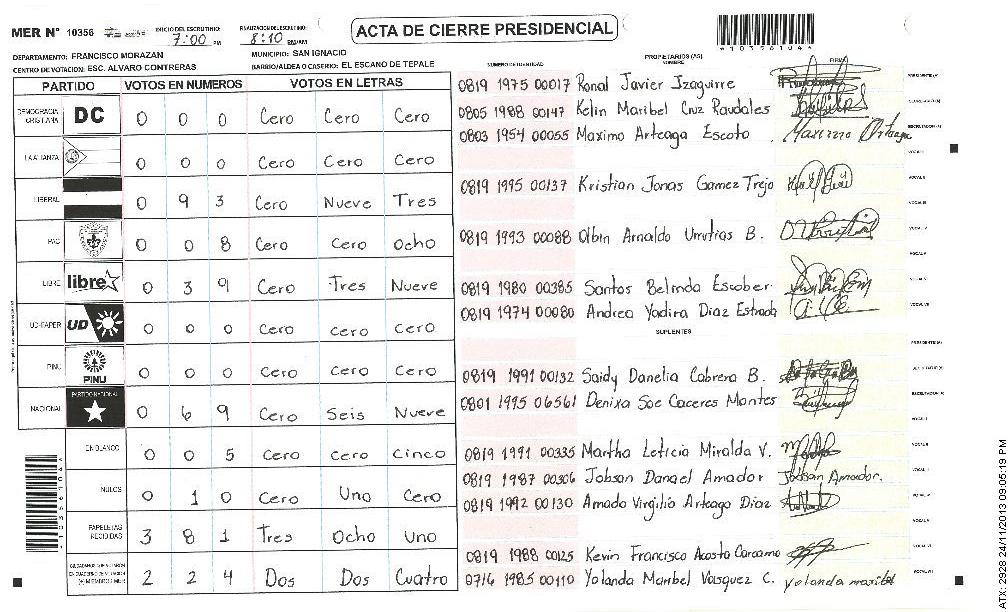 MER N° 10356 INICIO DEL ESCRUTINIO: 7:00 PM FINALIZACION DEL ESCRUTINIO: 8:10 PM/AM
ACTA DE CIERRE PRESIDENCIAL
*10356104*
DEPARTAMENTO: FRANCISCO MORAZAN MUNICIPIO: SAN IGNACIO
CENTRO DE VOTACION: ESC. ALVARO CONTRERAS BARRIO/ALDEA O CASERIO: EL ESCANO DE TEPALE
PARTIDO VOTOS EN NUMEROS VOTOS EN LETRAS
DEMOCRACIA CRISTIANA DC 0 0 0 Cero Cero Cero
LA ALIANZA 0 0 0 Cero Cero Cero
LIBERAL 0 9 3 Cero Nueve Tres
PAC 0 0 8 Cero Cero Ocho
LIBRE libre 0 3 9 Cero Tres Nueve
UD-FAPER UD 0 0 0 Cero Cero Cero
PINU PINU 0 0 0 Cero Cero Cero
NACIONAL PARTIDO NACIONAL 0 6 9 Cero Seis Nueve
EN BLANCO 0 0 5 Cero Cero Cinco
NULOS 0 1 0 Cero Uno Cero
PAPELETAS RECIBIDAS 3 8 1 Tres Ocho Uno
CIUDADANOS QUE VOTARON EN CUADERNO DE VOTACION (+) MIEMBROS MER 2 2 4 Dos Dos Cuatro
NUMERO DE IDENTIDAD PROPIETARIOS (AS) NOMBRE FIRMA
0819 1975 00017 Ronal Javier Izaguirre PRESIDENTE (A)
0805 1988 00147 Kelin Maribel Cruz Raudales SECRETARIO (A)
0803 1954 00055 Maximo Arteaga Escoto Maximo Arteaga ESCRUTADOR (A)
VOCAL I
0819 1995 00137 Kristian Jonas Gamez Trejo VOCAL II
VOCAL III
0819 1993 00088 Olbin Arnaldo Urrutias B. VOCAL IV
VOCAL V
0819 1980 00385 Santos Belinda Escober VOCAL VI
0819 1974 00080 Andrea Yadira Diaz Estrada VOCAL VII
SUPLENTES
PRESIDENTE (A)
0819 1991 00132 Saidy Danelia Cabrera B. SECRETARIO (A)
0801 1995 06561 Denixa Soe Caceres Montes ESCRUTADOR (A)
VOCAL I
0819 1991 00335 Martha Leticia Miralda V. VOCAL II
0819 1987 00306 Jobson Danael Amador Jobson Amador. VOCAL III
0819 1992 00130 Amado Virgilio Arteaga Diaz VOCAL IV
VOCAL V
0819 1988 00125 Kevin Francisco Acosta Carcamo VOCAL VI
0716 1985 00110 Yolanda Maribel Vasquez C. yolanda maribel VOCAL VII
*10356104*
ATX: 2928 24/11/2013 09:05:19 PM